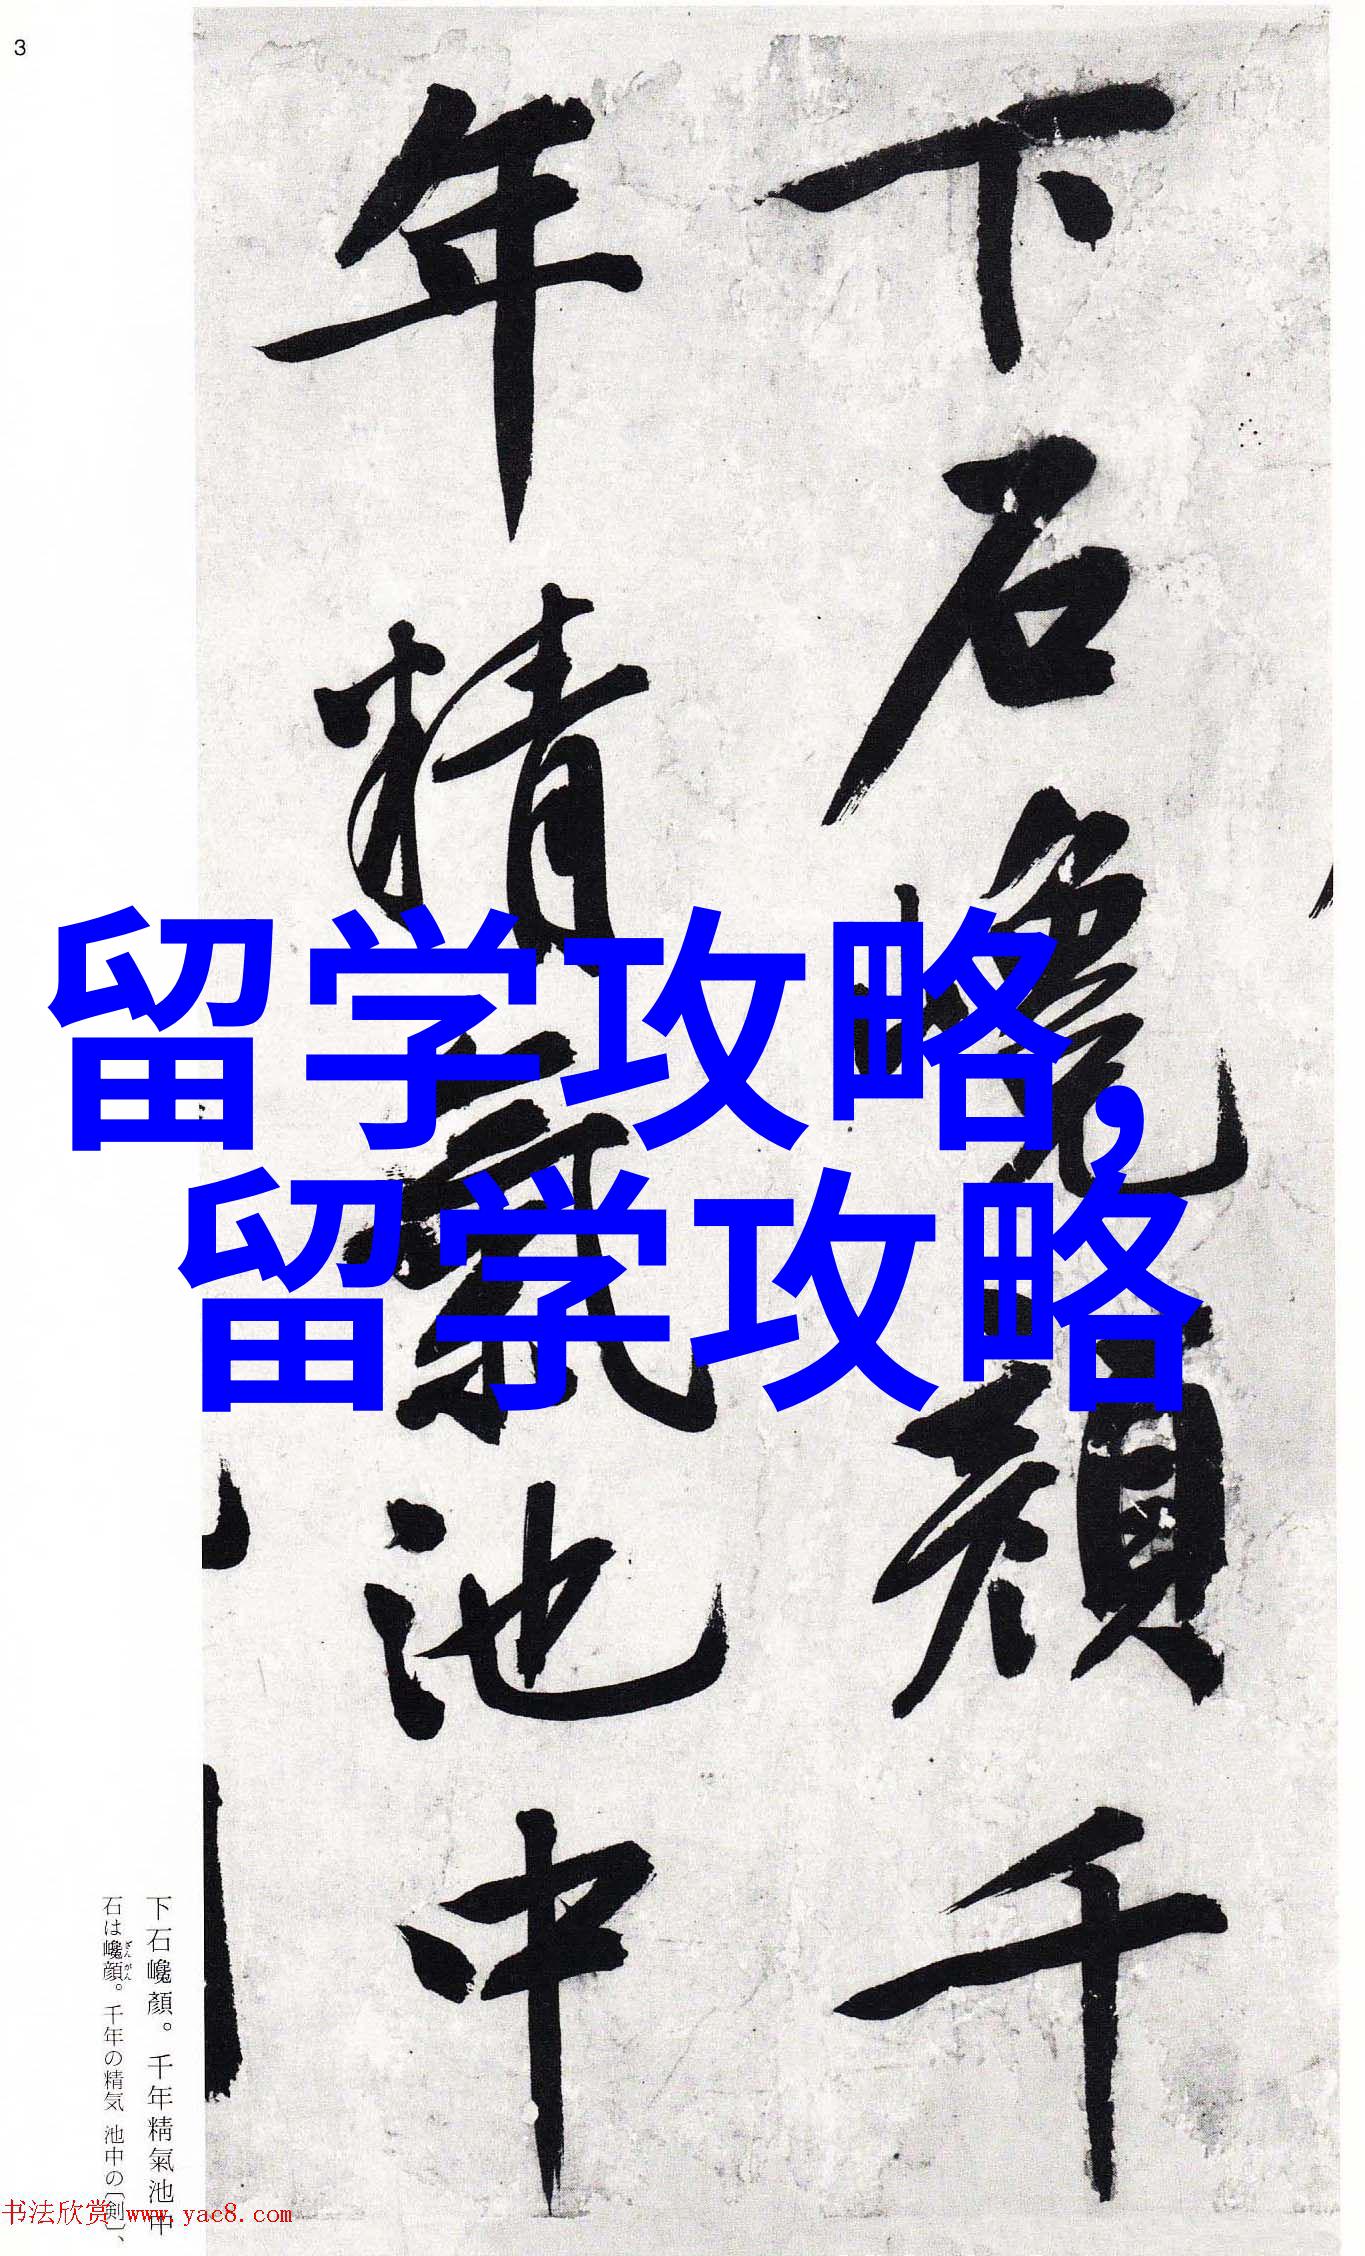 3
下石巉顔千
年精氣池中
留学攻略,
留学攻略
下石巉顏。千年精氣池中
石は巉顔。千年の精気 池中の〔剣〕、
ざんがん
书法欣赏 www.yac8.com